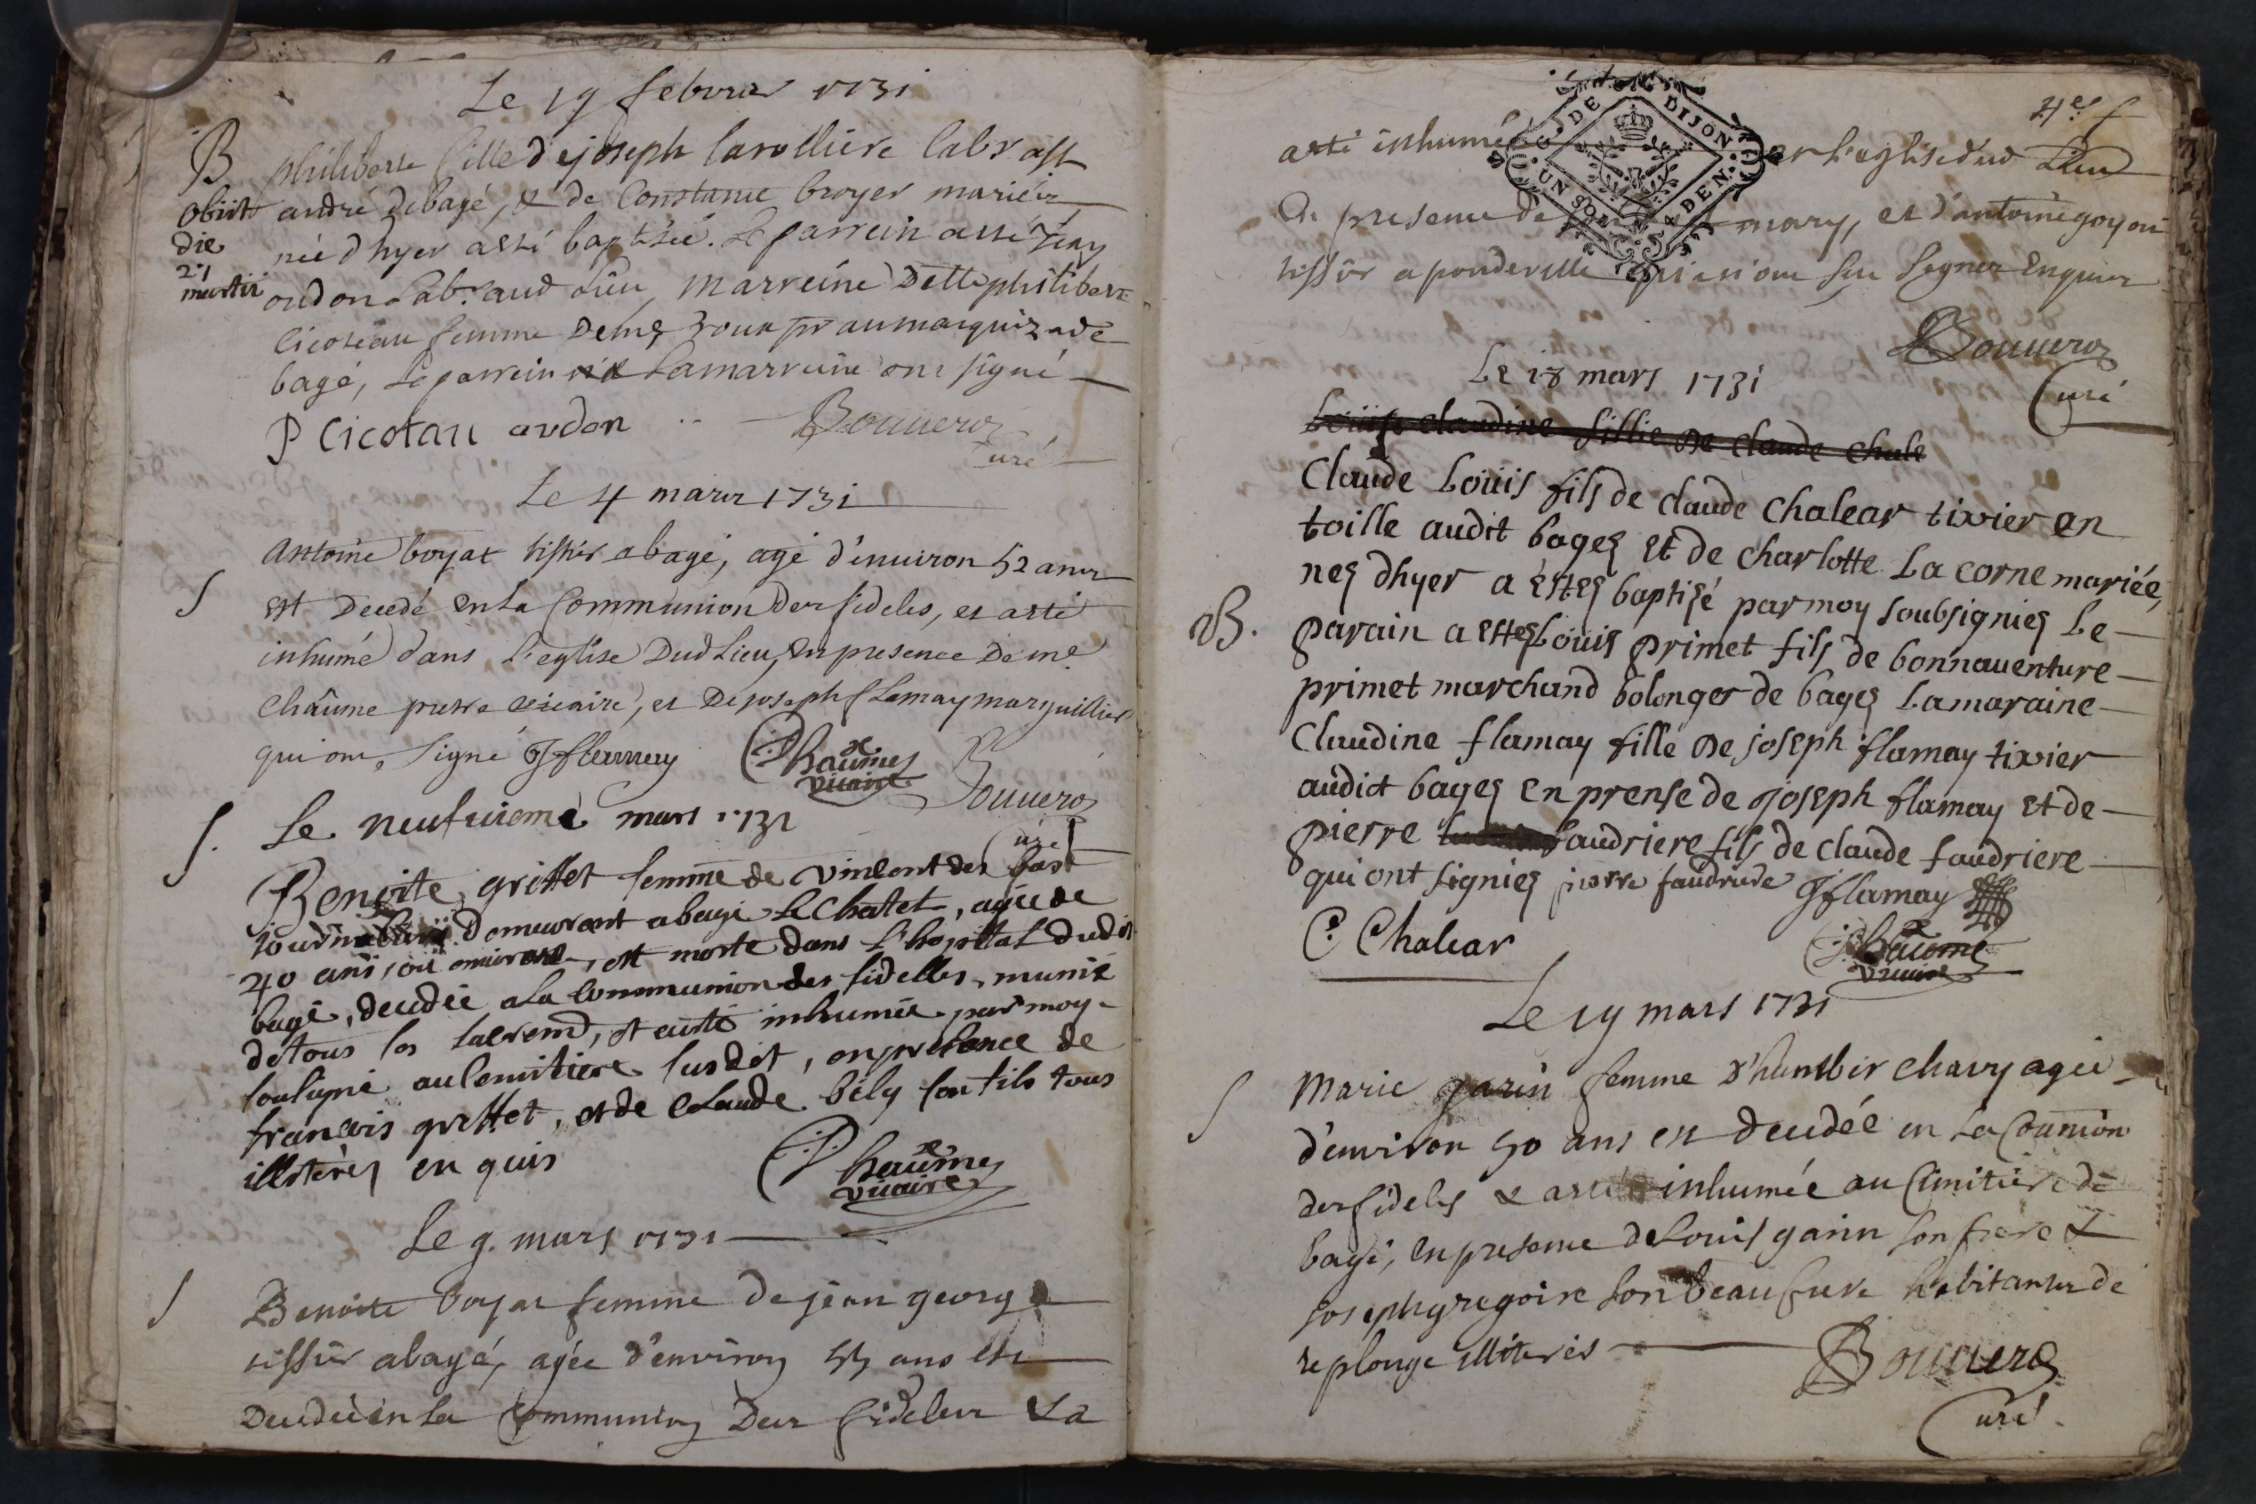 Le 19 febvrier 1731
B
philiberte fille de joseph larolliere labr a st
obiit die 21 martii
andré de bagé, & de Constance broyer mariéz
née d'hyer a esté baptisée. Le parrein a esté
oudon lab.r aud lieu, marreine Delle philiberte
Cicoteau femme de me Roux au marquizade
bagé, Le parrein et La marreine ont signé
P Cicotau oudon Bouuero
Curé
Le 4 mars 1731
S
Antoine boyat tissier a bagé, agé d'enuiron 52 anz
est Decedé en La Communion Des fideles, et a esté
inhumé dans L'eglise Dud Lieu, En presence De me
Chaûme pretre vicaire, et De joseph flamay marguillier
qui ont signé J flamay Chaûme
vicaire
Bouuero
Curé
S. Le neufuieme mars 1731
Benoite grillet femme de vincent des bast
demeurant a bagé Le Chatel, agée de
40 ans, ou enuiron, est morte dans L'hopital dudit
bagé, decedée a La Communion des fidelles, munie
de tous les sacrem., et a esté inhumée par moy
sousigné au Cemitiere susdit, en presence de
francois grillet, et de Claude bély son fils tous
illiterés enquis Chaûme
vicaire
Le 9. mars 1731
S
Benoite boyat femme de jean george
tissier a bagé, agée d'enuiron 55 ans est
Decedée en La Communion Des fideles & a
41e f
G. DE DIJON
UN SOL 4 DEN.
esté inhumée L'eglise dud Lieu
En presence de mary, et d'antoine goyon
tissier a pondevelle qui n'ont sçu signer Enquis
Bouuero
Curé
Le 18 mars 1731
Louise claudine fillie de claude chale
Claude Loüis fils de claude chalear tixier en
toille audit bagez et de charlotte La corne mariée,
nez dhyer a éstez baptizé par moy soubsigniez Le
B.
parain a estez Loüis primet fils de bonnauenture
primet marchand bolonger de bagez La maraine
Claudine flamay fille de joseph flamay tixier
audict bagez en prense de joseph flamay et de
pierre faudriere fils de claude faudriere
qui ont signiez pierre faudriere J flamay
C. Chalear Chaûme
vicaire
Le 19 mars 1731
S
Marie garin femme d'humbir chavy agée
d'environ 50 ans est decedée en La Coumion
des fideles & a esté inhumée au Cimitiere de
bagé, En presence de Louis garin son frere &
joseph gregoire son beau frere habitants de
replonge illiterés
Bouuero
Curé